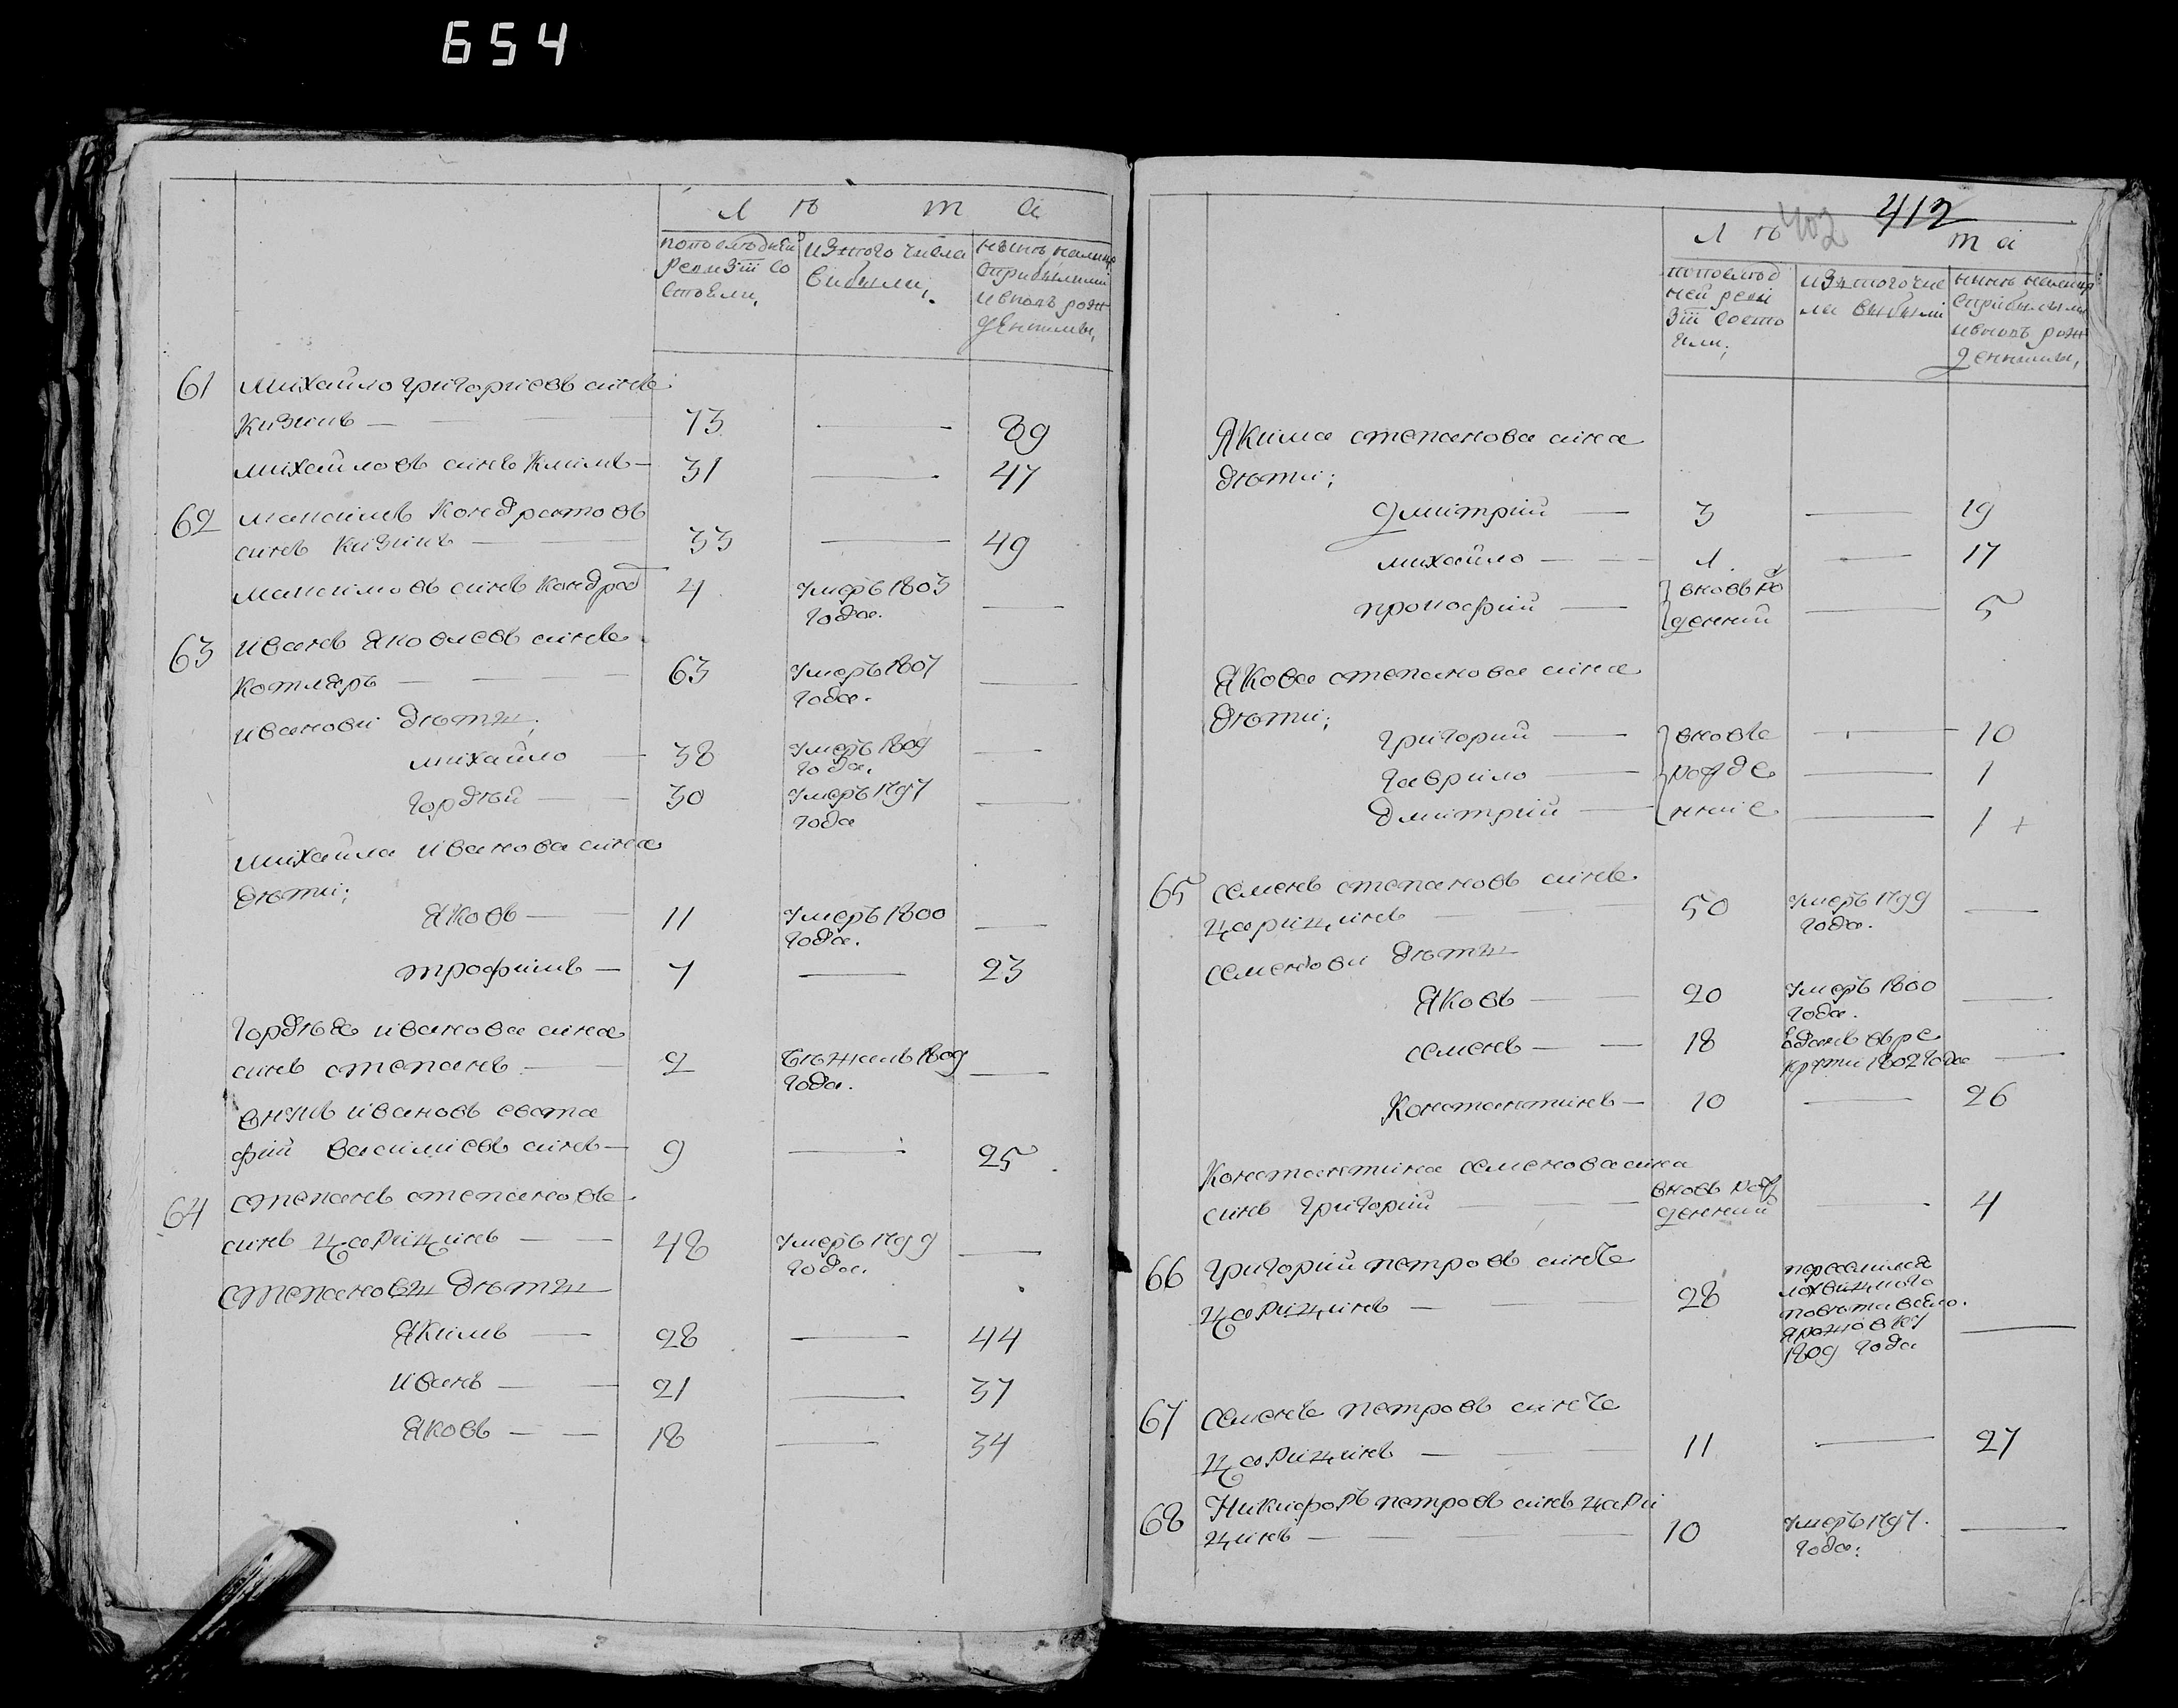 654
Л ѣ т а
попоследней изтого числа нынѣ налицо
ревизіи со выбыли, сприбылими
стояли, ивновь рож
денными,
61 михайло григориевъ синъ
Кизимъ — 73 — 89
михайловъ синъ Климъ — 31 — 47
62 максимъ Кондратовъ
синъ Кизимъ — 33 — 49
максимовъ синъ Кондрат 4 умеръ 1803 —
года.
63 иванъ Яковлевъ синъ
Котляръ — 63 умеръ 1807 —
года.
иванови дѣти;
михайло — 38 умеръ 1809 —
года.
гордѣй — 30 умеръ 1797 —
года
михайла иванова сина
дѣти;
Яковъ — 11 умеръ 1800 —
года.
трофимъ — 7 — 23
гордѣя иванова сина
синъ степанъ — 2 бѣжалъ 1809 —
года.
внукъ ивановъ евста
фий василиевъ синъ — 9 — 25
64 степанъ степановъ
синъ Цариц инъ — 48 умеръ 1799 —
года.
степанови дѣти
Якимъ — 28 — 44
иванъ — 21 — 37
Яковъ — 18 — 34
402 412
Л ѣ т а
попослѣд изтого чис нынѣ налицо
ней реви ла выбыли сприбылыми
зіи состо ивновь рож
яли; денными,
Якима степанова сина
дѣти;
дмитрий — 3 — 19
михайло — 1 — 17
прокофий — вновь ро — 5
денний
Якова степанова сина
дѣти;
григорий — вновь — 10
гаврило — рожде — 1
дмитрий — нние — 1 +
65 семенъ степановъ синъ
царицинъ — 50 умеръ 1799 —
года.
семенови дѣти
Яковъ — 20 умеръ 1800 —
года.
семенъ — 18 вданъ вре —
крути 1802 года
Константинъ — 10 — 26
Константина семенова сина
синъ григорий — вновь рож — 4
денний
66 григорий петровъ синъ переселился
царицинъ — 28 лохвицкого
повѣта всело.
1809 года —
67 семенъ петровъ синъ
царицинъ — 11 — 27
68 Никифоръ петровъ синъ цари
цинъ — 10 умеръ 1797. —
года: